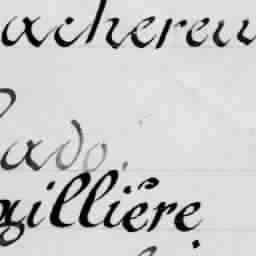 achereu
ado.
aillière